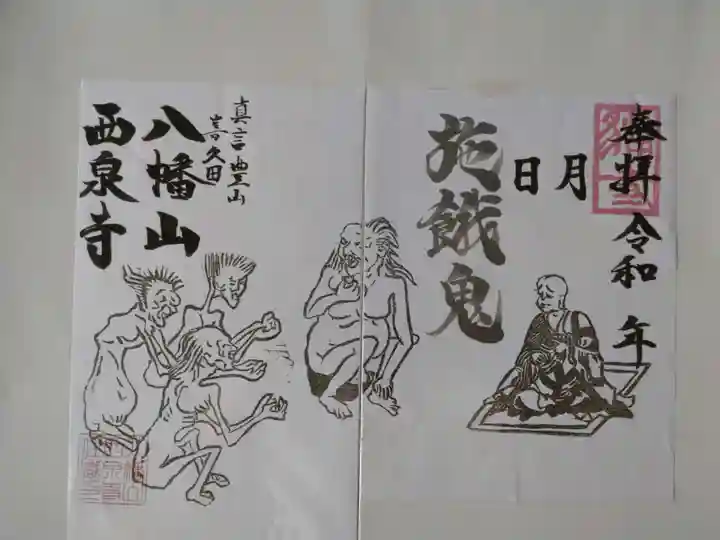 奉拝 令和 年
月
日
施餓鬼
真言豊山
喜久田
八幡山
西泉寺